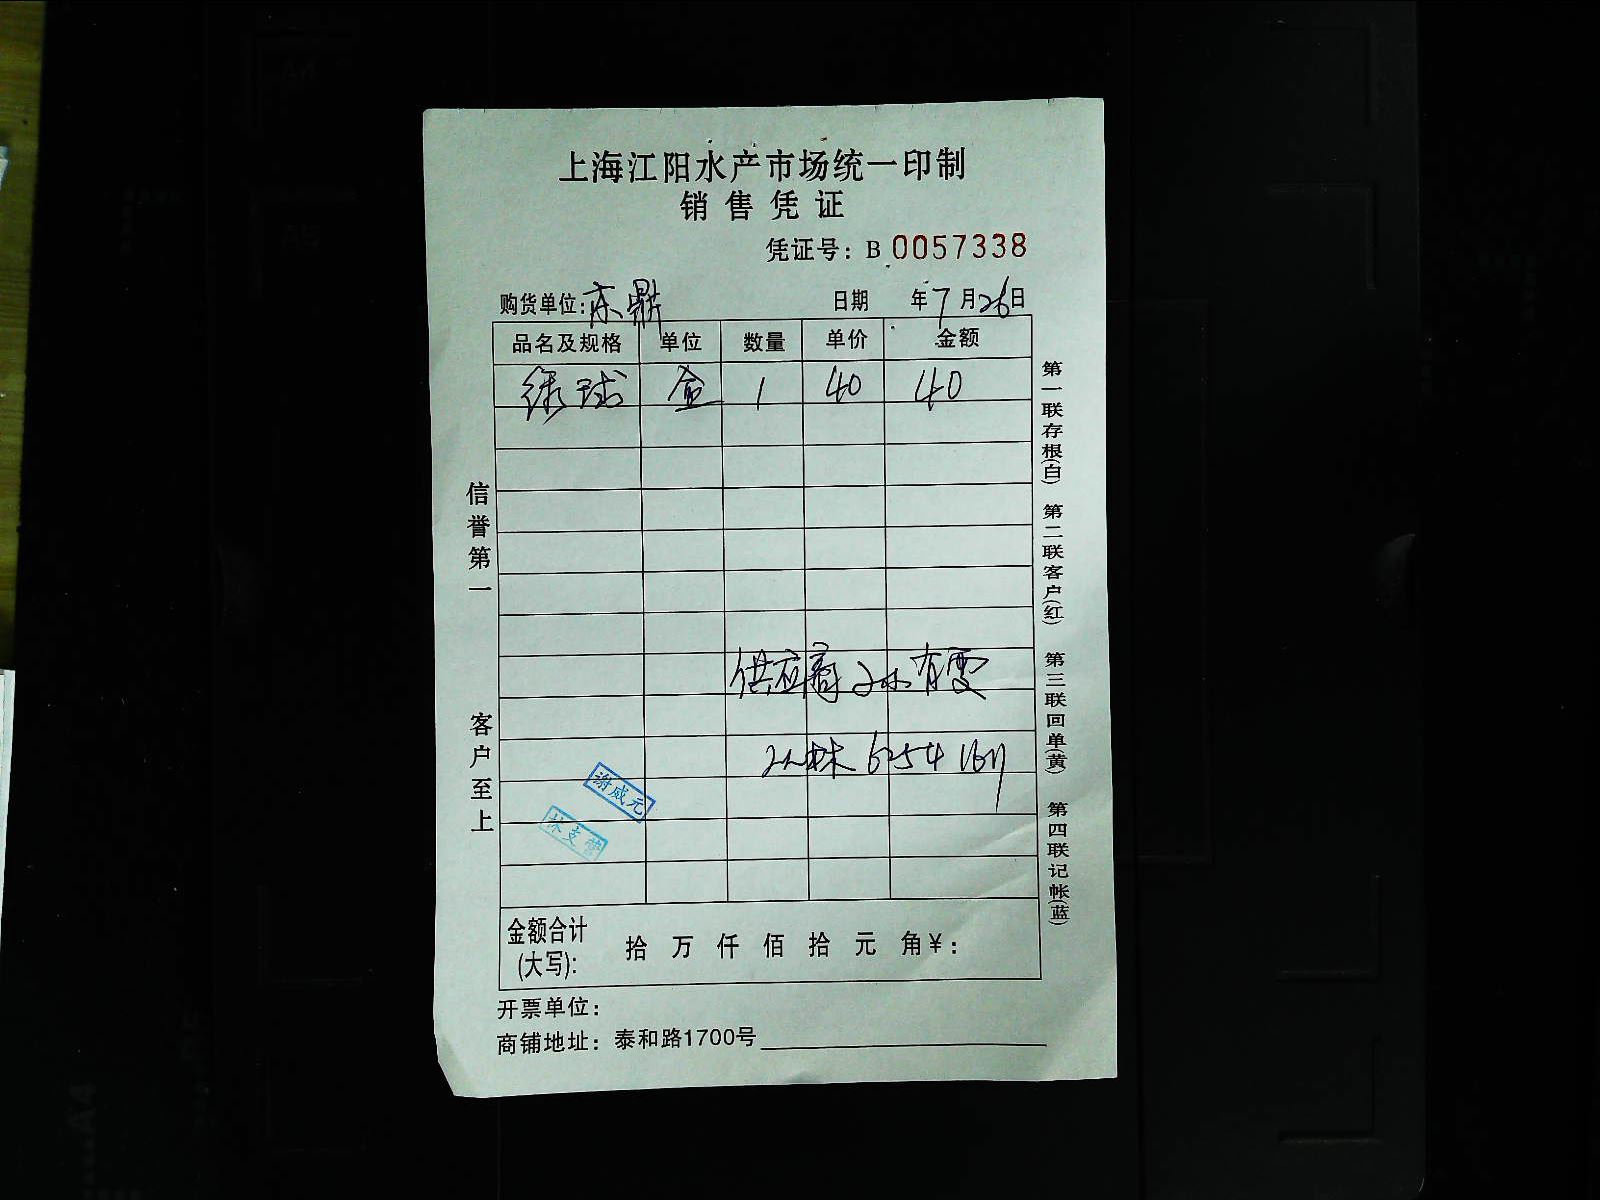 上海江阳水产市场统一印制
销售凭证
凭证号：B 0057338
购货单位：东鼎 日期 年7月26日
品名及规格 单位 数量 单价 金额
绿球 盒 1 40 40
信誉第一
客户至上
供应商 孙有雯
谢咸元
金额合计(大写)： 拾 万 仟 佰 拾 元 角￥：
开票单位：
商铺地址：泰和路1700号
第一联存根(白) 第二联客户(红) 第三联回单(黄) 第四联记帐(蓝)